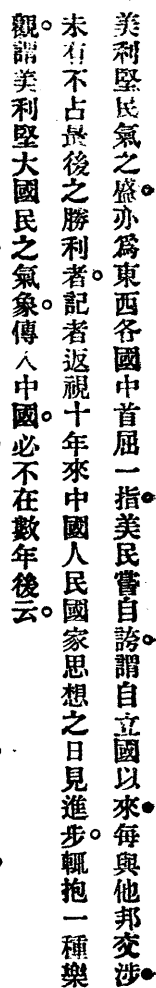 美利堅民氣之盛亦爲東西各國中首屈一指美民嘗自誇謂自立國以來每與他邦交涉
未有不占最後之勝利者。記者返視十年來中國人民國家思想之日見進步。輒抱一種樂
觀。謂美利堅大國民之氣象。傳入中國。必不在數年後云。